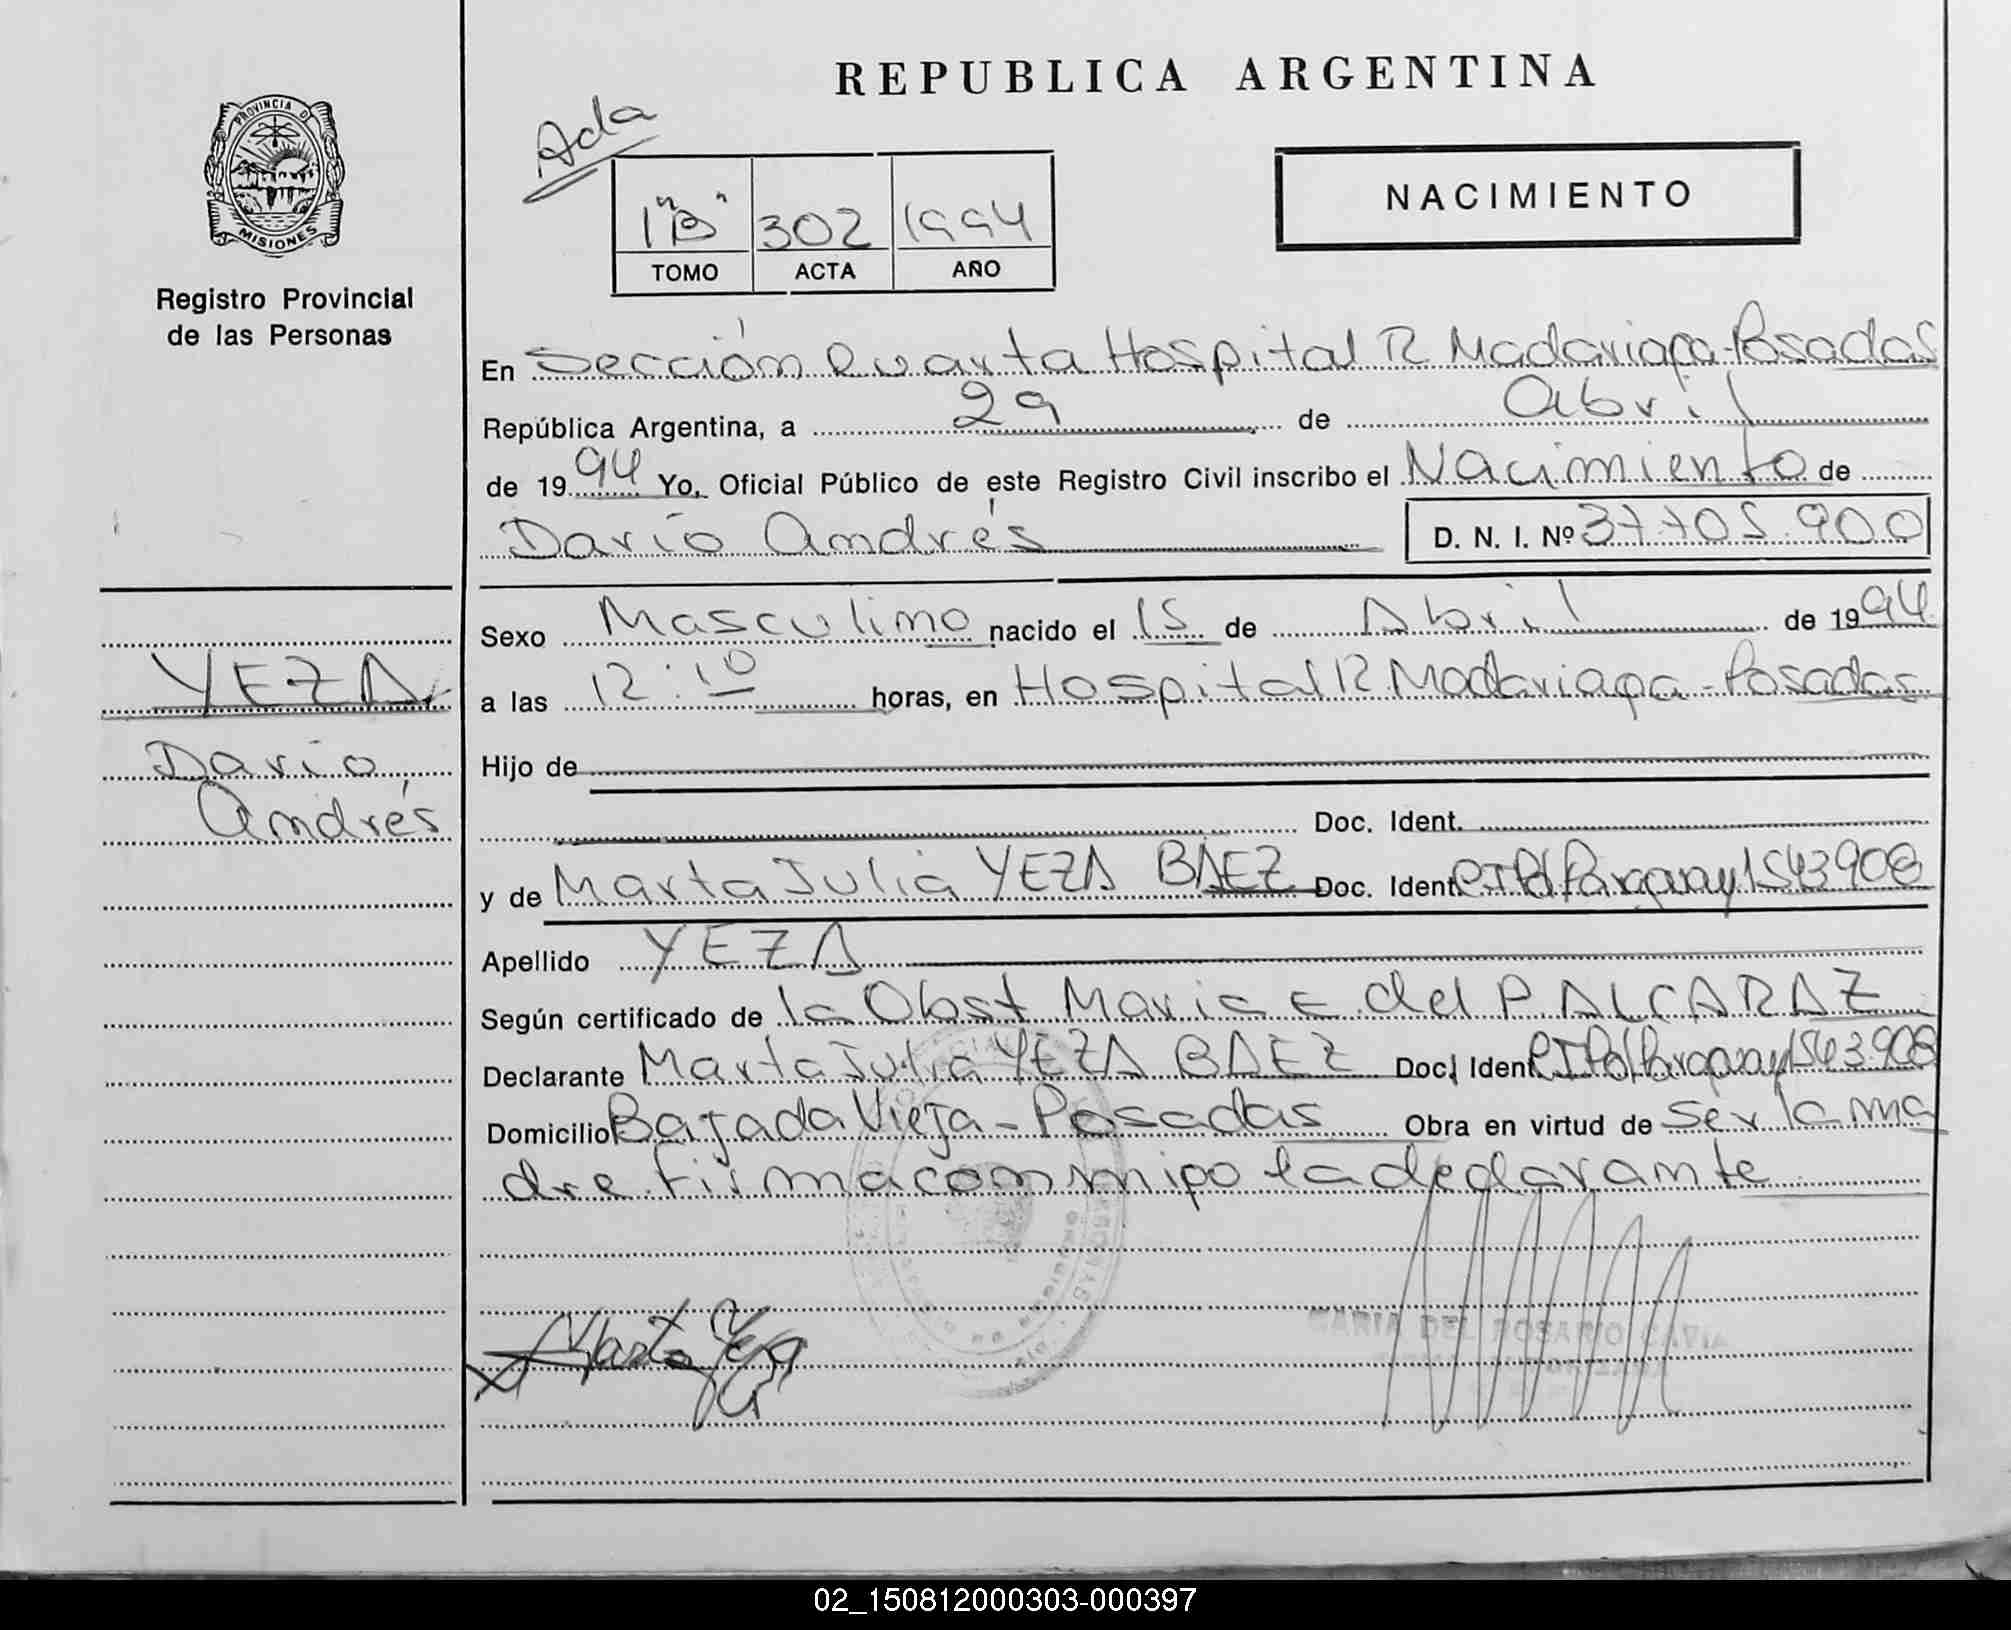 REPUBLICA ARGENTINA
Acta
PROVINCIA D
MISIONES
Registro Provincial
de las Personas
1"B" 302 1994
TOMO ACTA AÑO
NACIMIENTO
En Sección Cuarta Hospital R Madariaga - Posadas
República Argentina, a 29 de Abril
de 1994 Yo, Oficial Público de este Registro Civil inscribo el Nacimiento de
Darío Andrés D. N. I. Nº 37.705.900
Sexo Masculino nacido el 15 de Abril de 1994
a las 12:10 horas, en Hospital R Madariaga - Posadas
Hijo de
Doc. Ident.
y de Marta Julia YEZA BAEZ Doc. Ident. C I Pol Paraguay 1543908
Apellido YEZA
Según certificado de la Obst Maria E del P ALCARAZ
Declarante Marta Julia YEZA BAEZ Doc. Ident. C I Pol Paraguay 1543.908
Domicilio Bajada Vieja - Posadas Obra en virtud de ser la ma
dre firma conmigo la declarante
YEZA
Dario
Andrés
Marta Yeza
MARIA DEL ROSARIO
02_150812000303-000397